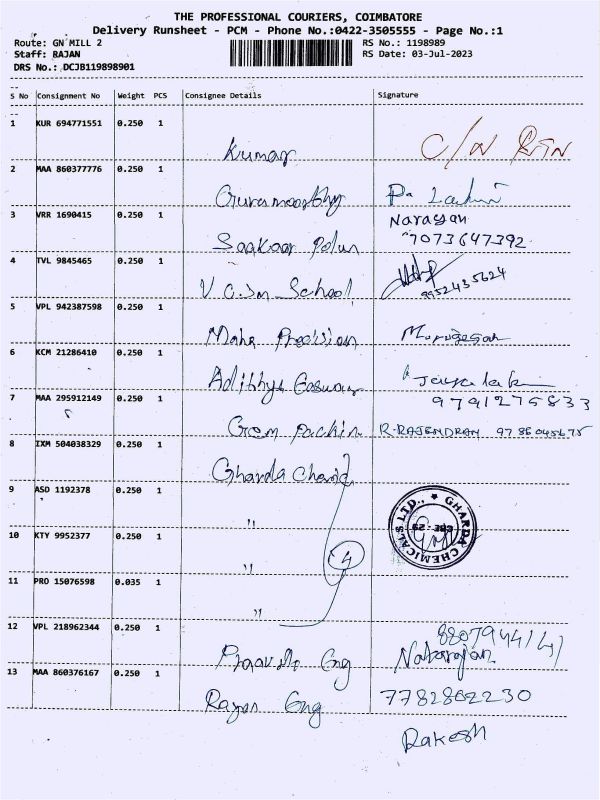 THE PROFESSIONAL COURIERS, COIMBATORE
Delivery Runsheet - PCM - Phone No.:0422-3505555 - Page No.:1
Route: GN MILL 2 RS No.: 1198989
Staff: RAJAN RS Date: 03-Jul-2023
DRS No.: DCJB119898901
S No Consignment No Weight PCS Consignee Details Signature
1 KUR 694771551 0.250 1
Kumar C/N RTN
2 MAA 860377776 0.250 1
Gurumoorthy P. Laxmi
3 VRR 1690415 0.250 1 Narayan
7073647392
4 TVL 9845465 0.250 1
V C.S.M School 9952435624
5 VPL 942387598 0.250 1
Maha Precision Murugesan
6 KCM 21286410 0.250 1
Adithya
7 MAA 295912149 0.250 1 9791275833
Gem R-RAJENDRAN
8 IXM 504038329 0.250 1
Gharda Chemic
9 ASD 1192378 0.250 1
"
GHARDA CHEMICALS LTD.,
10 KTY 9952377 0.250 1
" 4
11 PRO 15076598 0.035 1
"
12 VPL 218962344 0.250 1
Eng Natarajan
13 MAA 860376167 0.250 1 7782862230
Rayan Eng
Rakesh